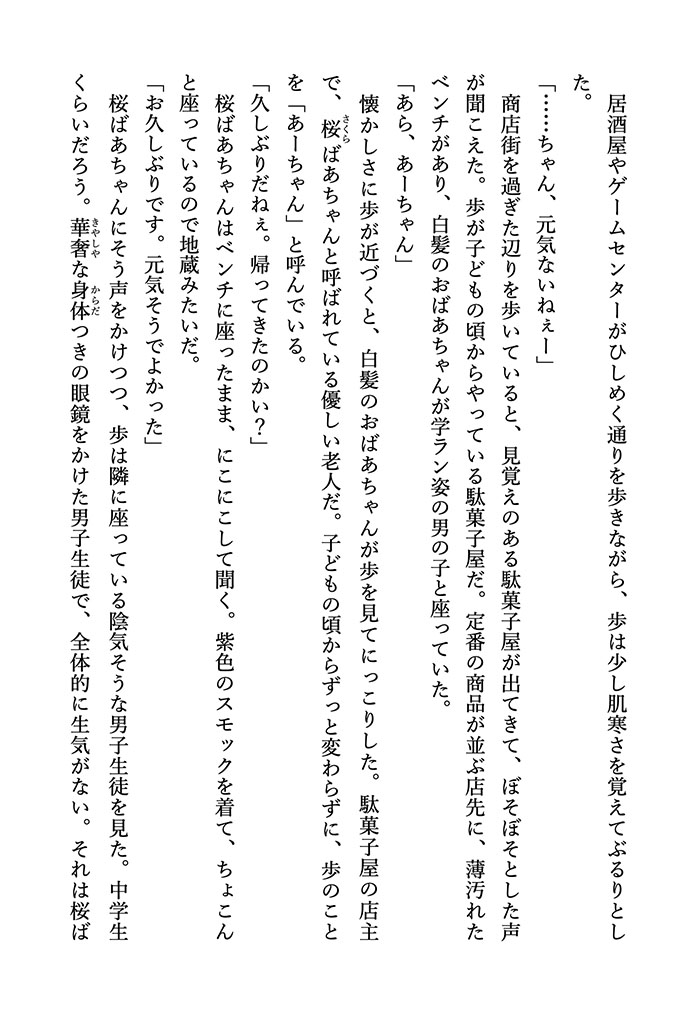 居酒屋やゲームセンターがひしめく通りを歩きながら、歩は少し肌寒さを覚えてぶるりとし
た。
「……ちゃん、元気ないねぇー」
　商店街を過ぎた辺りを歩いていると、見覚えのある駄菓子屋が出てきて、ぼそぼそとした声
が聞こえた。歩が子どもの頃からやっている駄菓子屋だ。定番の商品が並ぶ店先に、薄汚れた
ベンチがあり、白髪のおばあちゃんが学ラン姿の男の子と座っていた。
「あら、あーちゃん」
　懐かしさに歩が近づくと、白髪のおばあちゃんが歩を見てにっこりした。駄菓子屋の店主
で、桜ばあちゃんと呼ばれている優しい老人だ。子どもの頃からずっと変わらずに、歩のこと
を「あーちゃん」と呼んでいる。
「久しぶりだねぇ。帰ってきたのかい？」
　桜ばあちゃんはベンチに座ったまま、にこにこして聞く。紫色のスモックを着て、ちょこん
と座っているので地蔵みたいだ。
「お久しぶりです。元気そうでよかった」
　桜ばあちゃんにそう声をかけつつ、歩は隣に座っている陰気そうな男子生徒を見た。中学生
くらいだろう。華奢な身体つきの眼鏡をかけた男子生徒で、全体的に生気がない。それは桜ば